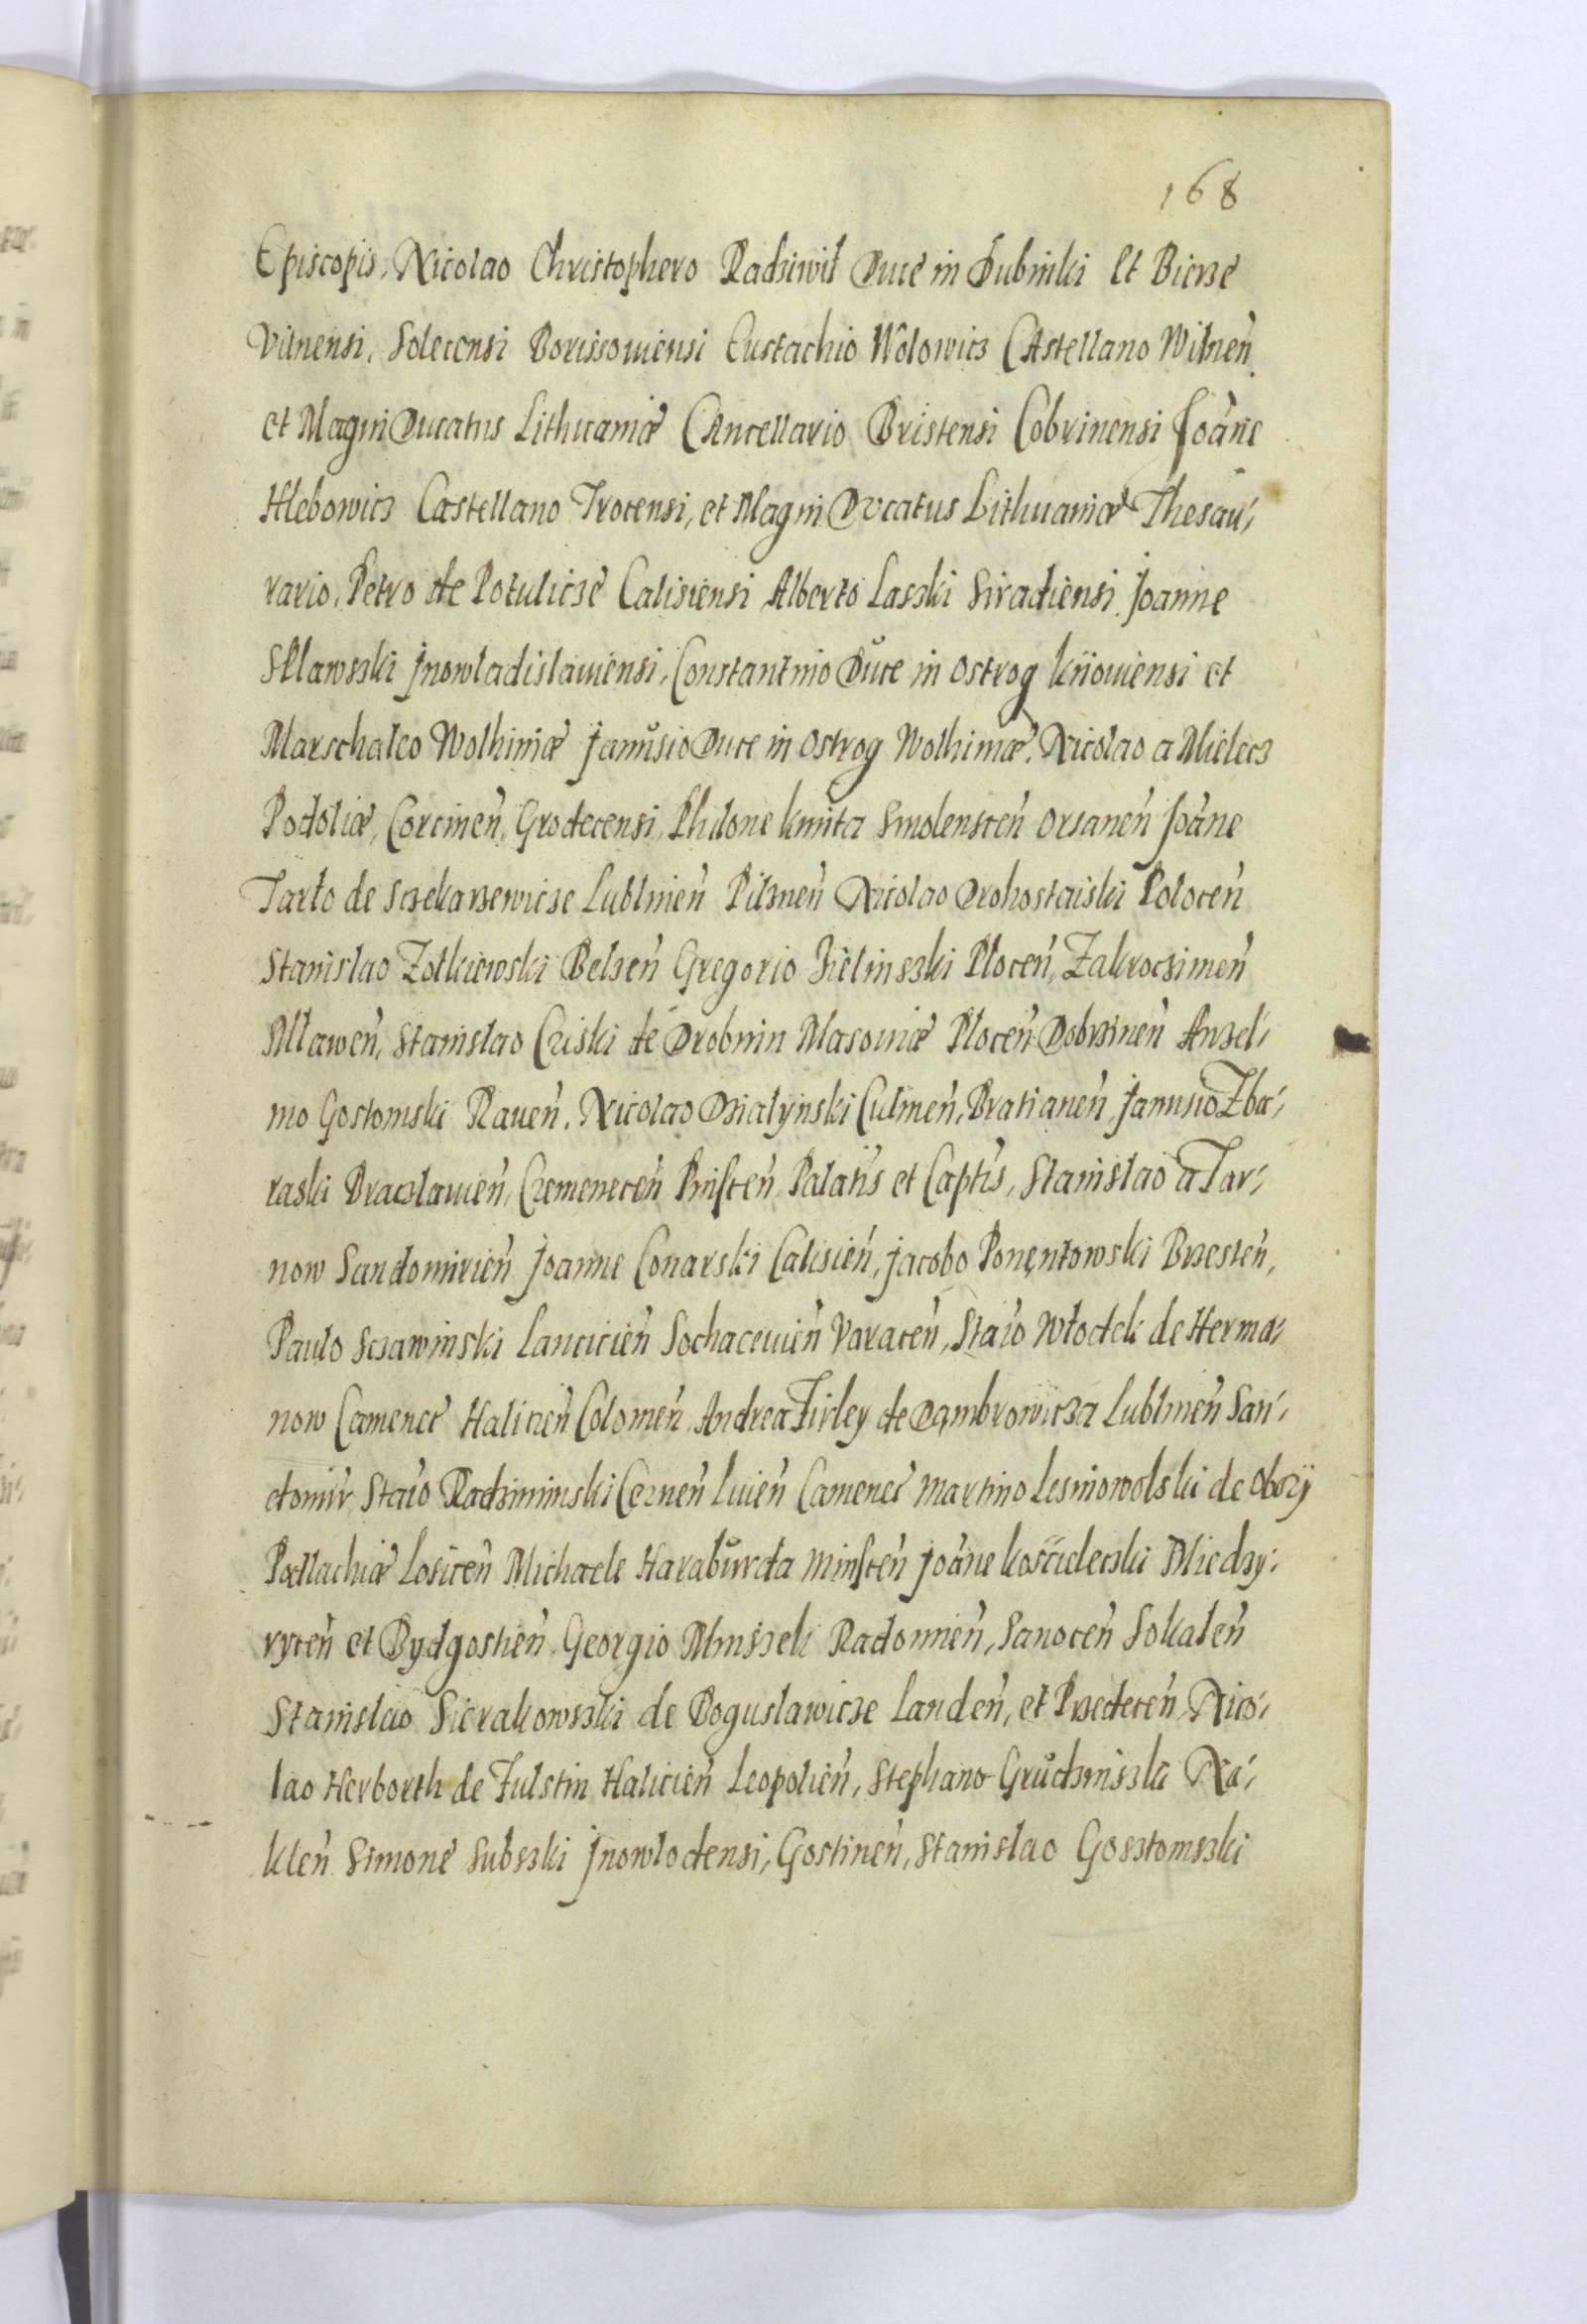 168
Episcopis, Nicolao Christophero Radziwił Duce in Dubinki et Bierze
Vilnensi, Solecensi Borissoviensi Eustachio Wolowicz Castellano Wilneñ
et Magni Ducatus Lithuaniæ Cancellario Bristensi Cobrinensi Joāne
Hlebowicz Castellano Trocensi, et Magni Ducatus Lithuaniæ Thesau-
rario, Petro de Potulicze Calisiensi Alberto Laszki Siradiensi Joanne
Sllawszki Jnowladislaviensi, Constantino Duce in Ostrog kijoviensi et
Marschalco Wolhiniæ Janusio Duce in Ostrog Wolhiniæ, Nicolao a Mielecz
Podoliæ, Corcineñ, Grodecensi, Philone kmita Smolensceñ Orsaneñ Joāne
Tarło de Sczekarzewicze Lublineñ Pilzneñ Nicolao Drohostaiski Poloceñ
Stanislao Zołkiewski Belzeñ Gregorio Zielinszki Ploceñ, Zakroczimeñ
Mlaweñ, Stanislao Criski de Drobnin Masoviæ Ploceñ Dobrzineñ Anzel-
mo Gostomski Raveñ, Nicolao Dzialynski Culmeñ, Bratianeñ Janusio Zba-
raski Braczlavieñ, Cremeneceñ Pinsceñ Palatis et Captis, Stanislao a Tar-
now Sandomirieñ Joanne Conarski Calisieñ, Jacobo Ponentowski Brzesteñ,
Paulo Sczawinski Lancicieñ Sochacevieñ Varaceñ, Staīo Włodek de Herma-
now Camenec Halicieñ Colomeñ Andrea Firley de Dambrowicza Lublineñ San-
domir Staīo Radziminski Cerneñ Liveñ Camenec Martino Lesniowolski de Obory
Podlachiæ Losiceñ Michaele Haraburda Minsceñ Joāne kościeleczki Miedzy-
ryceñ et Bydgostieñ Georgio Mniszek Radomieñ, Sanoceñ Sokaleñ
Stanislao Sierakowszki de Boguslawicze Landeñ, et Przedeceñ Nico-
lao Herborth de Fulstin Halicieñ Leopolieñ, Stephano Grudzinszki Na-
kleñ Simone Subszki Jnowlodensi, Gostineñ, Stanislao Gosztomszki